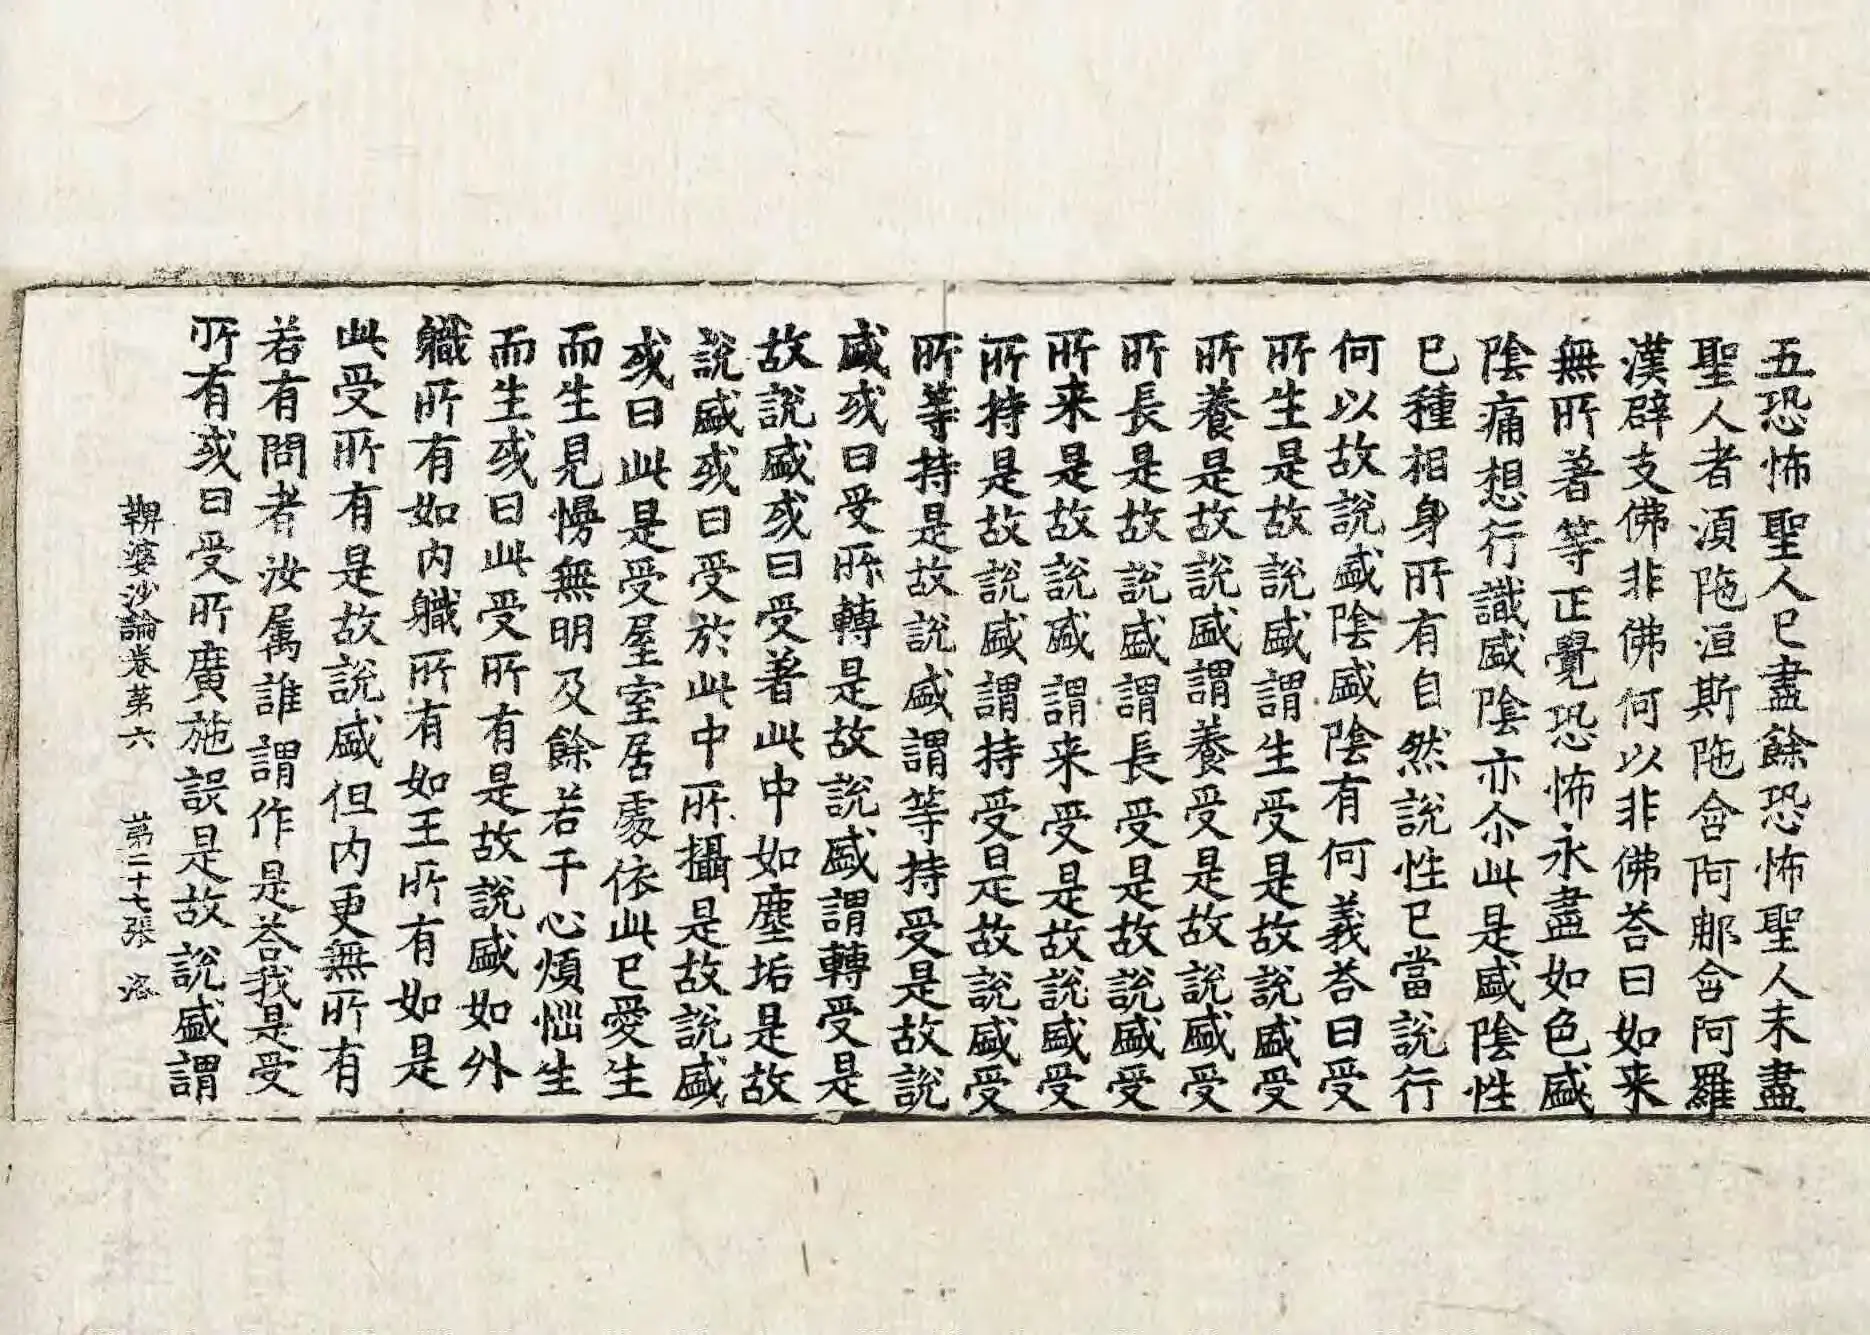 五恐怖聖人已盡餘恐怖聖人未盡
聖人者湏陁洹斯陁含阿那含阿羅
漢辟支佛非佛何以非佛荅曰如来
無所著等正覺恐怖永盡如色盛
陰痛想行識盛陰亦尒此是盛陰性
已種相身所有自然說性已當說行
何以故說盛陰盛陰有何義荅曰受
所生是故說盛謂生受是故說盛受
所養是故說盛謂養受是故說盛受
所長是故說盛謂長受是故說盛受
所来是故說盛謂来受是故說盛受
所持是故說盛謂持受是故說盛受
所等持是故說盛謂等持受是故說
盛或曰受所轉是故說盛謂轉受是
故說盛或曰受著此中如塵垢是故
說盛或曰受於此中所攝是故說盛
或曰此是受屋室居處依此已愛生
而生見慢無明及餘若干心煩惱生
而生或曰此受所有是故說盛如外
軄所有如內軄所有如王所有如是
此受所有是故說盛但內更無所有
若有問者汝屬誰謂作是荅我是受
所有或曰受所廣施設是故說盛謂
鞞婆沙論卷第六　第二十七張